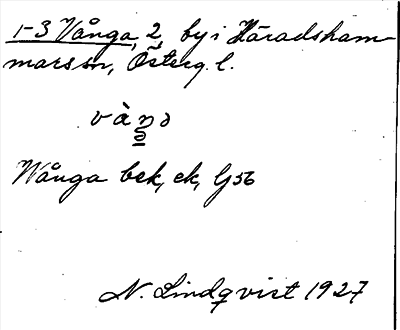 1-3 Vånga, 2, by i Häradsham-
mars sn, Österg. l.
Wånga bek, ek, Gs6
N. Lindqvist 1927